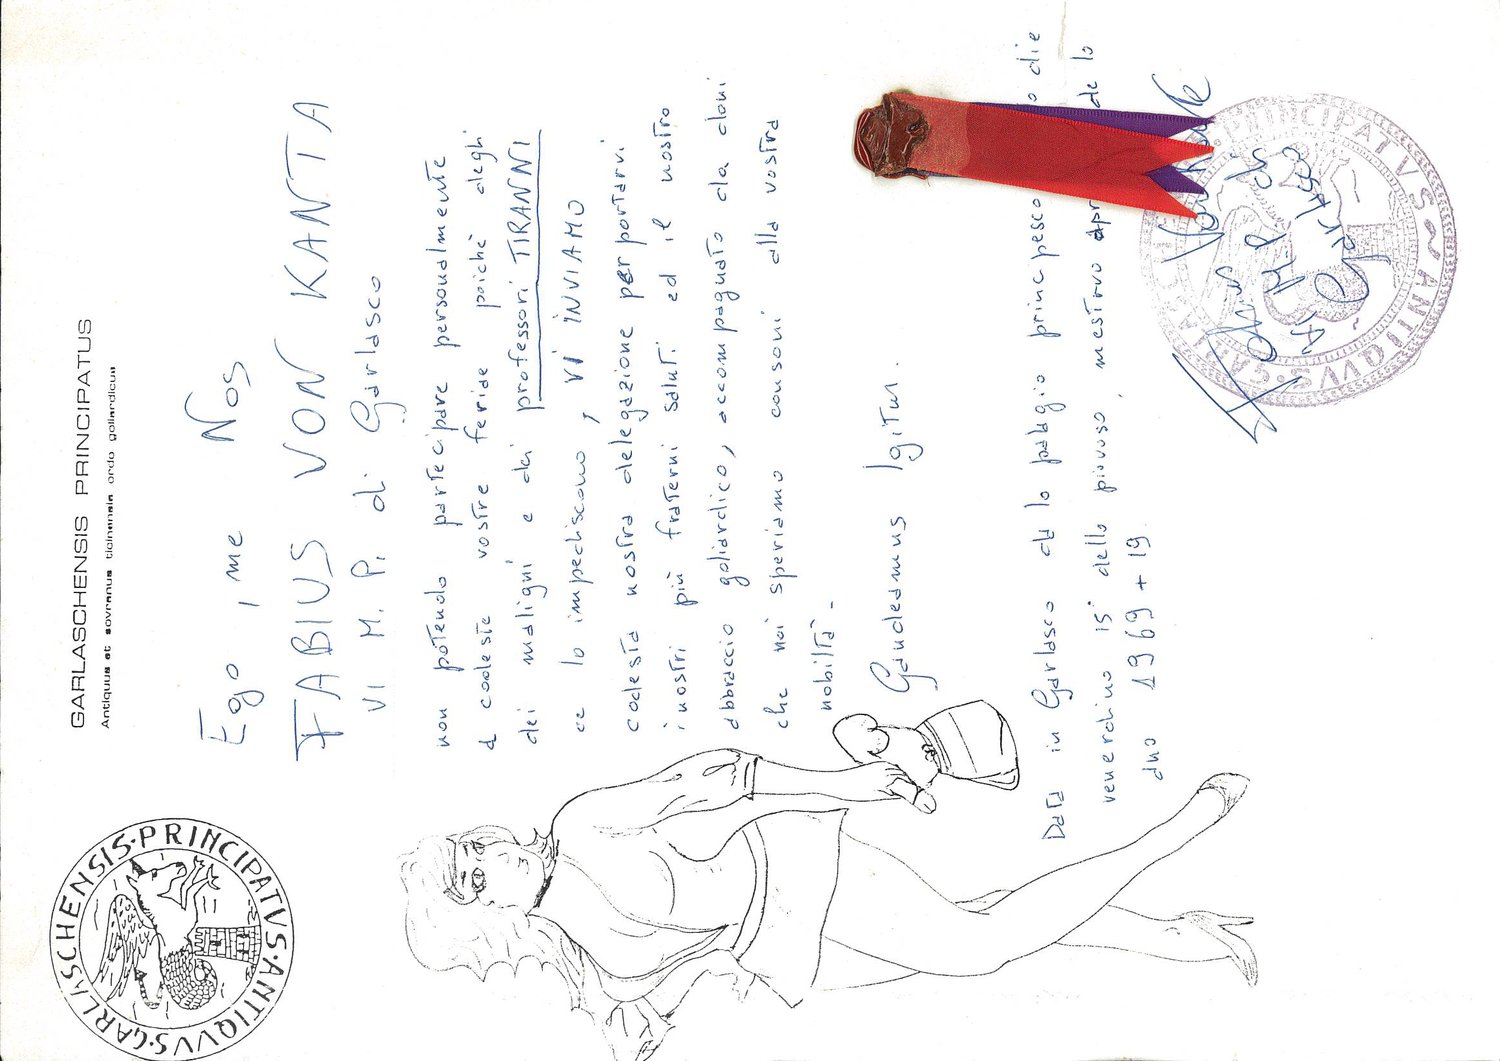 GARLASCHENSIS PRINCIPATUS
Antiquus et sovranus ticinensin ordo goliardicun
GARLASCHENSIS·PRINCIPATVS·ANTIQVVS·
Ego, me Nos
FABIUS VON KANTA
VI M. P. di Garlasco
non potendo partecipare personalmente
a codeste vostre feride poichè deghi
dei maligni e dai professori TIRANNI
ce lo impediscono, VI INVIAMO
codesta nostra delegazione per portarvi
i nostri più fraterni saluti ed il nostro
abbraccio goliardico, accompagnato da doni
che noi speriamo consoni alla vostra
nobiltà -
Gaudeamus Igitur.
Data in Garlasco da lo palagio principesco die
venerdino 15° dello piovoso, mestruo de lo
ano 1969 + 19.
VI M.P. di
Garlasco
GARLASCHENSIS·PRINCIPATVS·ANTIQVVS·